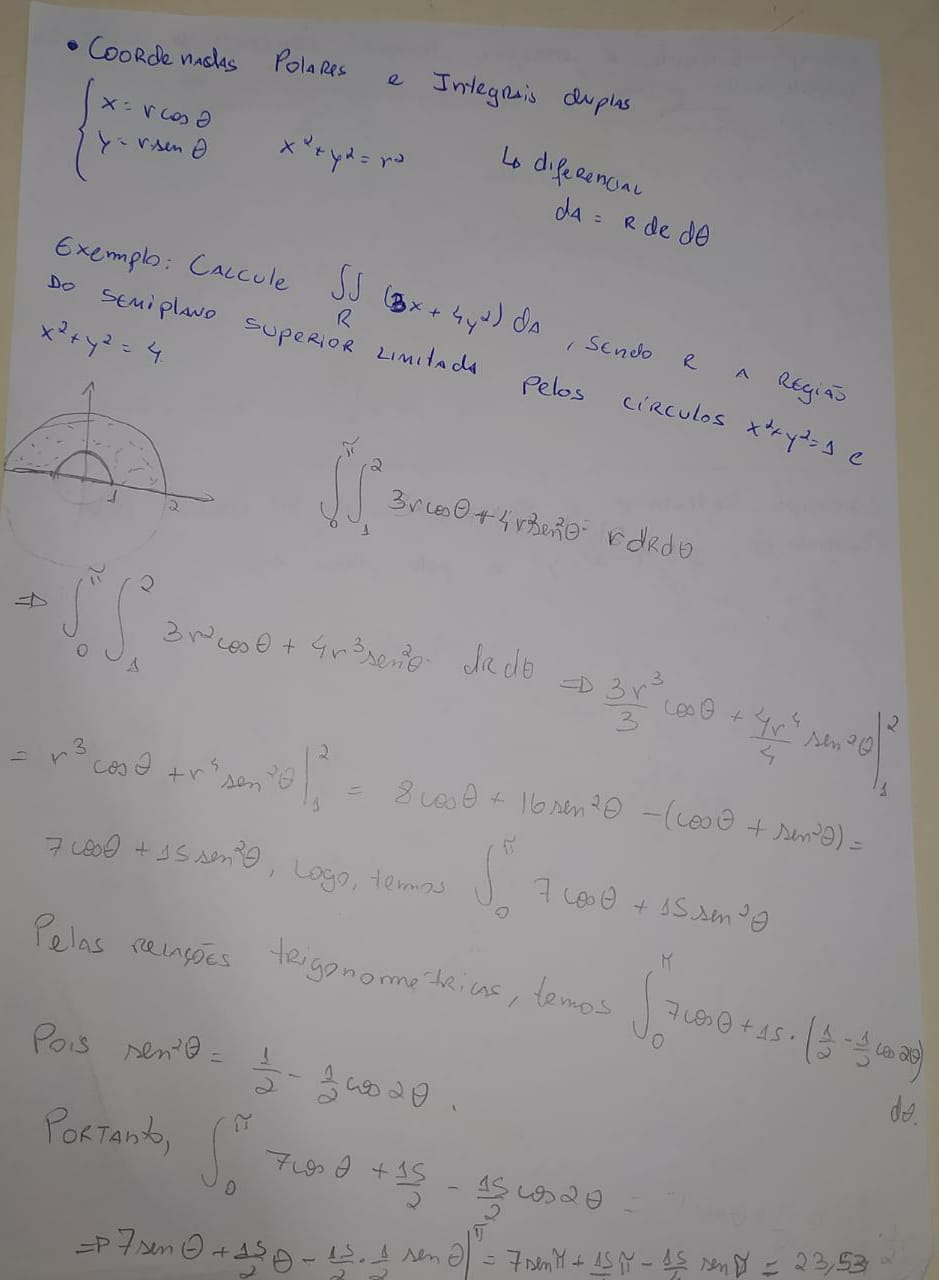 • Coordenadas Polares e Integrais duplas
{ x = r cos θ
y = r sen θ x² + y² = r² ↳ diferencial
dA = R dR dθ
Exemplo: Calcule ∫∫ (3x + 4y²) dA, sendo R a região
R
do semiplano superior limitada pelos círculos x² + y² = 1 e
x² + y² = 4.
1 2
∫₀^π ∫₁² 3r cos θ + 4r² sen²θ · r dR dθ
⇒ ∫₀^π ∫₁² 3r² cos θ + 4r³ sen²θ · dR dθ ⇒ 3r³/3 cos θ + 4r⁴/4 sen²θ |₁²
= r³ cos θ + r⁴ sen²θ |₁² = 8 cos θ + 16 sen²θ - (cos θ + sen²θ) =
7 cos θ + 15 sen²θ, logo, temos ∫₀^π 7 cos θ + 15 sen²θ
Pelas relações trigonométricas, temos ∫₀^π 7 cos θ + 15 · (1/2 - 1/2 cos 2θ)
dθ.
Pois sen²θ = 1/2 - 1/2 cos 2θ.
Portanto, ∫₀^π 7 cos θ + 15/2 - 15/2 cos 2θ =
⇒ 7 sen θ + 15/2 θ - 15/2 · 1/2 sen θ |^π = 7 sen π + 15/2 π - 15/4 sen π = 23,53